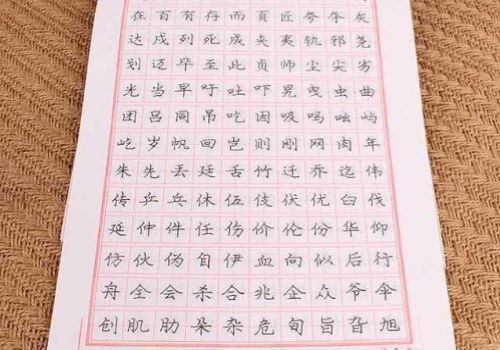 在百有存而页匠夸夺灰
达戌列死成夹夷轨邪尧
划迈毕至此贞师尘尖劣
光当早吁吐吓晃曳虫曲
团吕同吊吃因吸吗屿
屹岁帆回岂则刚网肉年
朱先丢廷舌竹迁乔迄伟
传乒乓休伍伎伏优臼伐
延仲件任伤价伦份华仰
仿伙伪自伊血向似后行
舟全会杀合兆企众爷伞
创肌肋朵杂危旬旨旮旭